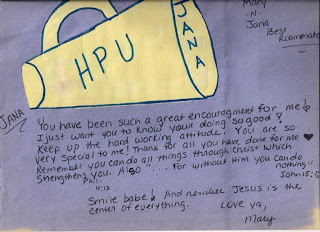 HPU
JANA
Mary
-N-
Jana
Best
Roommates
JANA
You have been such a great encouragment for me!
I just want you to know your doing so good!
Keep up the hard working attitude! You are so
very special to me! Thank for all you have done for me ♥
Remember you can do all things through Christ which
Strengthens you. Also "... For without Him you can do
nothing"
Phil.
4:13
John 15:5
Smile babe! And remember Jesus is the
center of everything.
Love ya,
Mary